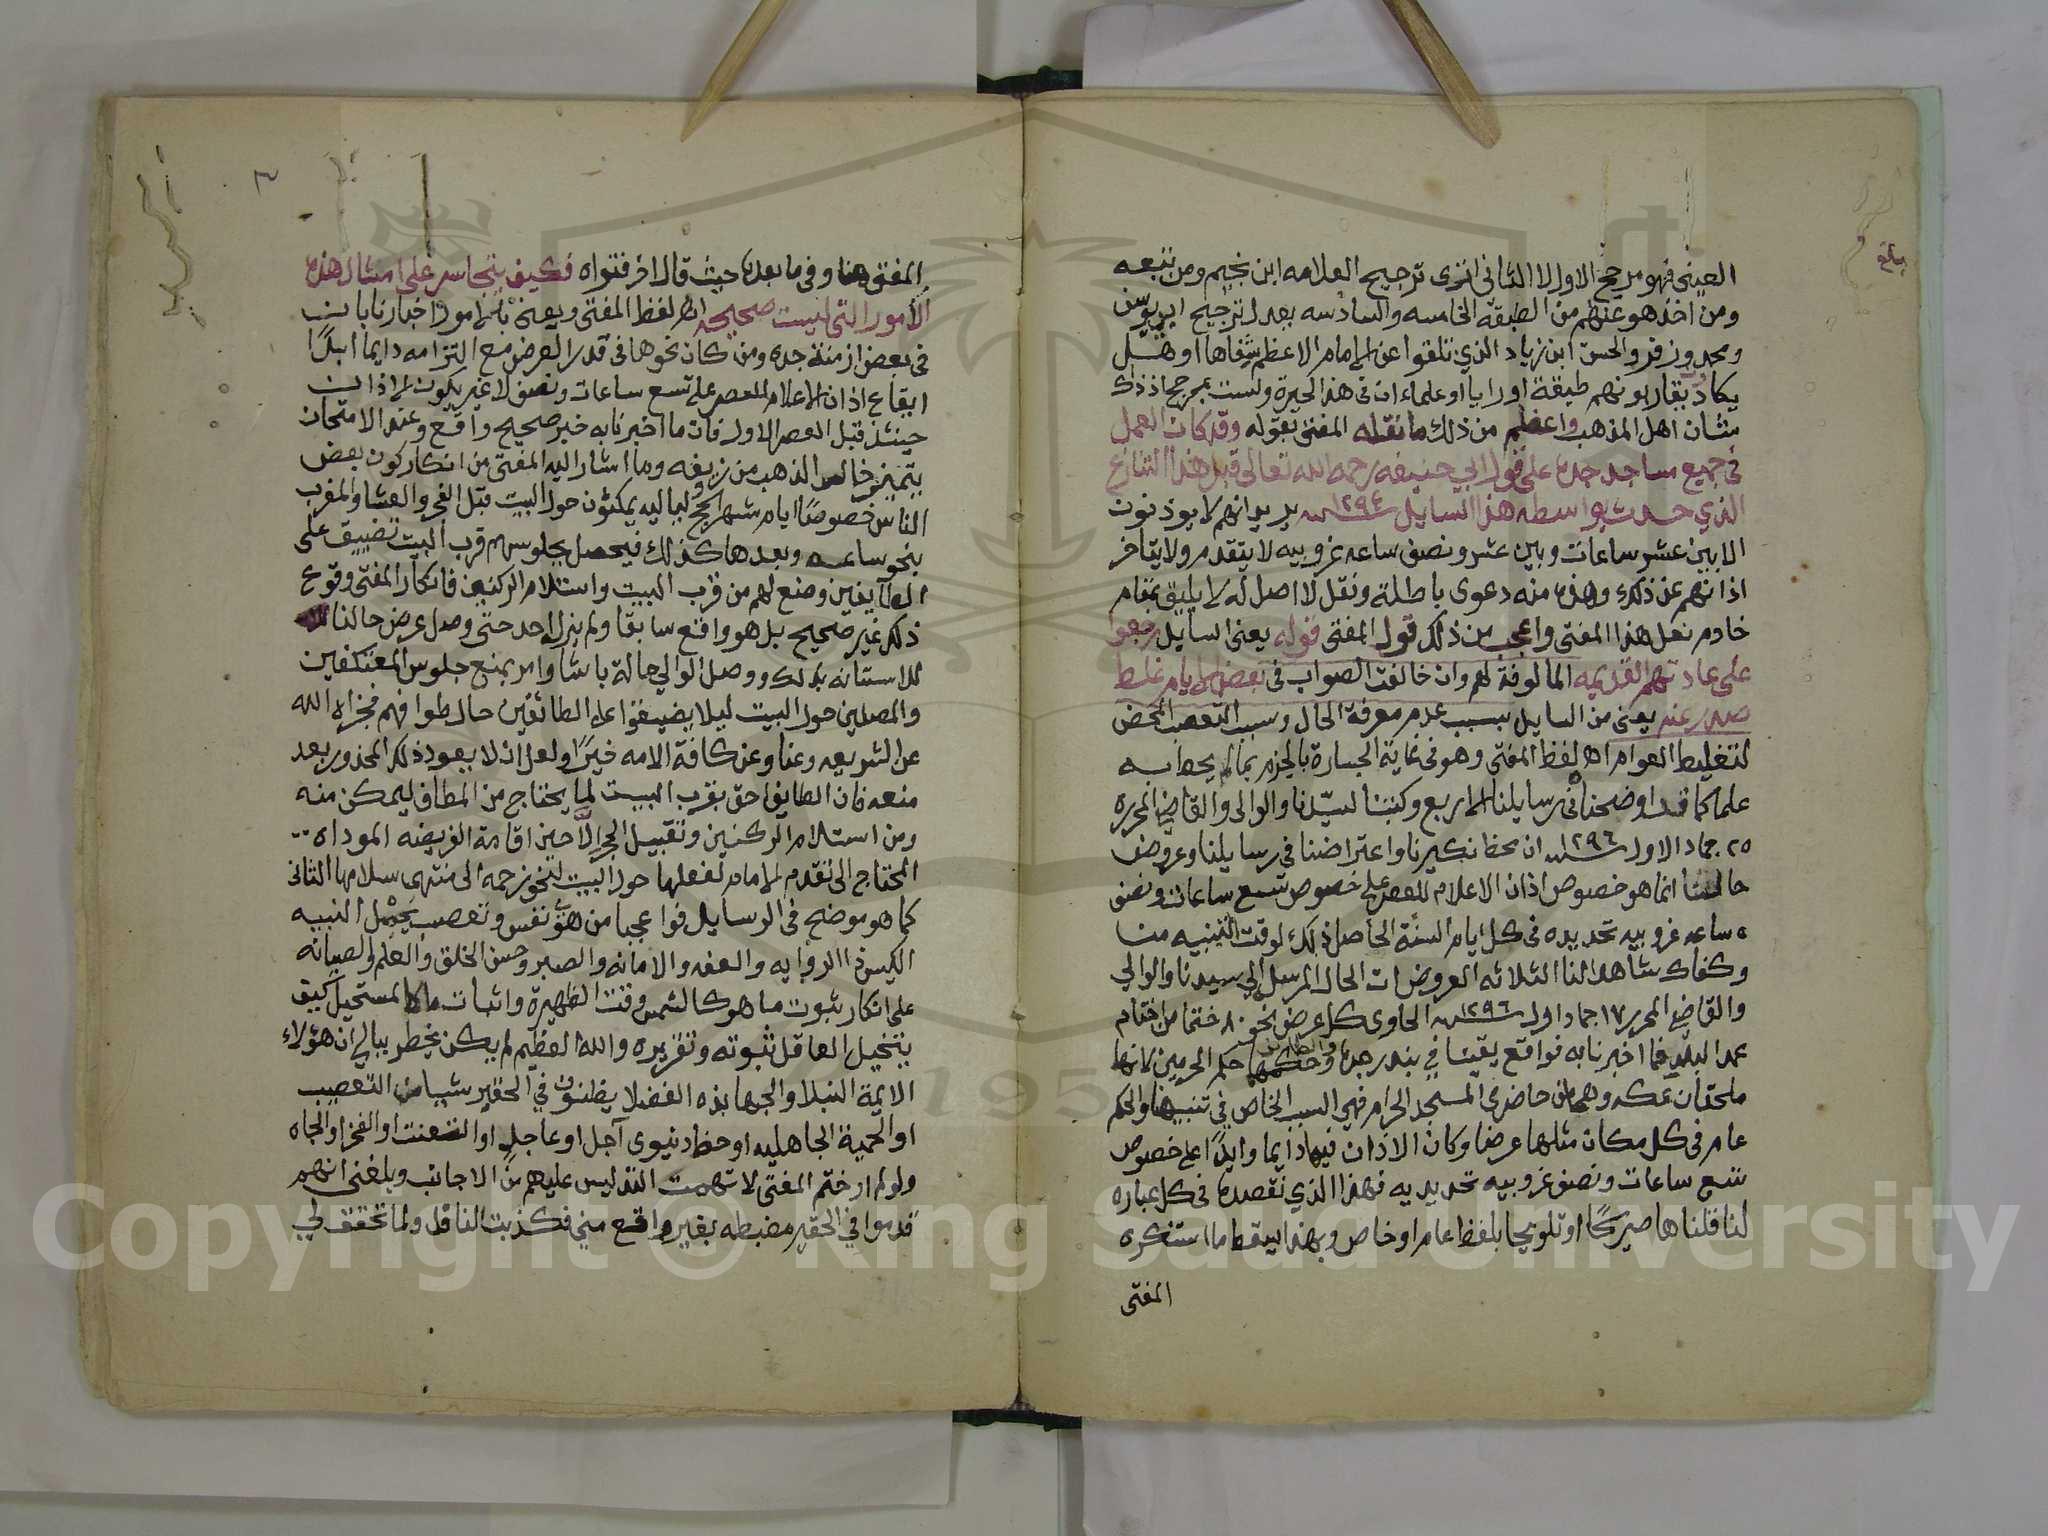 العينى فهو مرجح الاول لا الثانى اترى ترجيح العلامه ابن نجيم ومن تبعه
ومن اخذ هو عنهم من الطبقه الخامسه والسادسه يعدل ترجيح ابى يوسف
ومحمد وزفر والحسن ابن زياد الذي تلقوا عن الامام الاعظم شفاها او هل
يكاد يقاربونهم طبقة او رايا او علما ان في هذا لحيرة ولست بمرجح اذ ذاك
شان اهل المذهب واعظم من ذلك ما نقله المفتى بقوله وقد كان العمل
في جميع مساجد جده على قول ابي حنيفه رحمه الله تعالى قبل هذا التنازع
الذي حدث بواسطه هذا السايل سنة ١٢٩٤ يريد انهم لا يوذنون
الا بين عشر ساعات وبين عشر ونصف ساعه غروبيه لا يتقدم ولا يتاخر
اذانهم عن ذلك وهذه منه دعوى باطلة ونقل لا اصل له لا يليق بمقام
خادم نعل هذا المفتى واعجب من ذلك قول المفتى قوله يعنى السايل رجعوا
على عادتهم القديمه المالوفة لهم وان خالفت الصواب في بعض الايام غلط
صدر عنه يعنى من السايل بسبب عدم معرفة الحال وسبب التعصب المحض
لتغليط العوام اه لفظ المفتى وهو في غاية الجسارة بالجزم بما لم يحط به
علما كما قد اوضحنا في رسايلنا الاربع وكتبنا لسيدنا والوالى والقاضي المحرره
٢٥ جماد الاول سنة ١٢٩٦ ان محط نكيرنا واعتراضنا في رسايلنا وعروض
حالنا انما هو خصوص اذان الاعلام للعصر على خصوص تسع ساعات ونصف
ساعه غروبيه تحديده في كل ايام السنة الحاصل ذلك لوقت التنبيه منا
وكفاك شاهدا لنا الثلاثه العروضات الحال المرسل الي سيدنا والوالي
والقاضي المحرر ١٧ جماد اول سنة ١٢٩٦ الحاوى كل عرض نحو ٨٠ ختما من ختام
عمد البلد فما اخبرنا به فواقع يقينا في بندر جده وحكمها حكم الحرمين لانها
ملحقان عكه وهما من حاضرى المسجد الحرام فهي السبب الخاص في تنبيهنا والحكم
عام في كل مكان مثلها عرضا وكان الاذان فيها دايما وابدا على خصوص
تسع ساعات ونصف غروبيه تحديديه فهذا الذي نقصده في كل عباره
لنا قلناها صريحا او تلويحا بلفظ عام او خاص وبهذا يسقط ما استنكره
المفتى
بلغ
المفتى هنا وفي ما بعده حيث قال اخر فتواه فكيف يتجاسر على امثال هذه
الأمور التى ليست صحيحه اه لفظ المفتى ويعنى بالامور اخبارنا بان
في بعض ازمنة جده ومن كان نحوها في قدر العرض مع التزامه دايما ابدا
ايقاع اذان الاعلام للعصر على تسع ساعات ونصف لا غير يكون الاذان
حينئذ قبل العصر الاول فان ما اخبرنا به خبر صحيح واقع وعند الامتحان
يتميز خالص الذهب من زيفه وما اشار اليه المفتى من انكار كون بعض
الناس خصوصا ايام شهر الحج ولياليه يمكثون حول البيت قبل الفجر والعشا والمغرب
بنحو ساعه وبعدها كذلك فيحصل بجلوسهم قرب البيت تضييق على
الطايفين ومنع لهم من قرب البيت واستلام الركنين فانكار المفتى وقوع
ذلك غير صحيح بل هو واقع سابقا ولم يزل احد حتى وصل عرض حالنا
للاستانه بذلك ووصل الوالي حالة باشا وامر بمنع جلوس المعتكفين
والمصلين حول البيت ليلا يضيقوا على الطائفين حال طوافهم فجزاه الله
عن الشريعه وعنا وعن كافة الامه خيرا ولعل ان لا يعود ذلك المحذور بعد
منعه فان الطايف احق بقرب البيت لما يحتاج من المطاف ليمكن منه
ومن استلام الركنين وتقبيل الحجر الا حين اقامة الفريضه الموداه
المحتاج الى تقدم الامام لفعلها حول البيت لنحو زحمه الى منتهى سلامها الثانى
كما هو موضح في الرسايل فوا عجبا من هوى نفس وتعصب يحمل النبيه
الكيس ذا الروايه والعفه والامانه والصبر وحسن الخلق والعلم والصيانه
على انكار ثبوت ما هو كالشمس وقت الظهيرة واثبات ما كالمستحيل كيف
يتخيل العاقل ثبوته وتقريره والله العظيم لم يكن يخطر ببالي ان هؤلاء
الايمة النبلا والجهابذه الفضلا يظنون في الحقير شيا من التعصيب
او الحمية الجاهليه او حظ دنيوى آجل او عاجل او التعنت او الفخر او الجاه
ولو لم ار ختم المفتى لاتهمت التدليس عليهم من الاجانب وبلغنى انهم
قدموا في الحقير مضبطه بغير واقع منى فكذبت الناقل ولما تحقق لي
Copyright © King Saud University
195